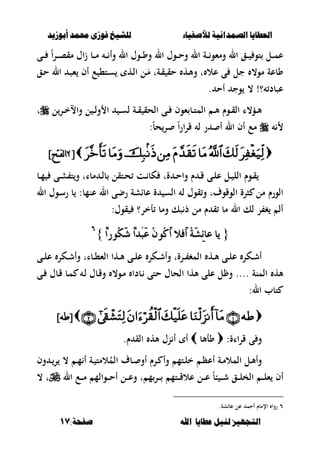 العطايا الصمدانية للأصفياء للشيخ فوزى محمد أبوزيد
عمـل بتوفيـق الله ومعونـة الله وحـول الله وطـول الله وأنـه مـا زال مقصـراً فـى
طاعة مولاه جل فى علاه، وهـذه حقيقـة، مَـن الـذى يسـتطيع أن يعبـد الله حـق
عبادته؟! لا يوجد أحد.
هـؤلاء القـوم هـم المتـابعون فـى الحقيقـة لسـيد الأولـين والآخـرين ﷺ،
لأنه ﷺ مع أن الله أصدر له قراراً صريحاً:
﴿ لِيَغْفِرَ لَكَ ٱللَّهُ مَا تَقَدَّمَ مِن ذَنۢبِكَ وَمَا تَأَخَّرَ ﴾ [٢الفتح]
يقـوم الليـل علـى قـدم واحـدة، فكانـت تحـتقن بالـدماء، ويتفشـى فيهـا
الورم من كثرة الوقوف، وتقول له السيدة عائشة رضى الله عنها: يا رسـول الله
ألم يغفر لك الله ما تقدم من ذنبك وما تأخر؟ فيقول:
{ يا عَائِشَةُ أَفَلاَ أَكُونُ عَبْداً شَكُوراً } ٦
أشـكره علـى هـذه المغفـرة، وأشـكره علـى هـذا العطـاء، وأشـكره علـى
هذه المنة .... وظل على هذا الحال حتى ناداه مولاه وقـال لـه كمـا قـال فـى
كتاب الله:
﴿ طه ۝١ مَآ أَنزَلْنَا عَلَيْكَ ٱلْقُرْءَانَ لِتَشْقَىٰٓ ۝٢ ﴾ [طه]
وفى قراءة: ﴿ طأها ﴾ أى أنزل هذه القدم.
وأهـل الملامـة أعظـم خلـتهم وأكـرم أوصـاف المُلامتيـة أنهـم لا يريـدون
أن يعلـم الخلـق شـيئاً عـن علاقـتهم بـربهم، وعـن أحـوالهم مـع الله ﷺ، لا
٦ رواه الإمام أحمد عن عائشة.
التجهيز لنيل عطايا الله صفحة:١٧